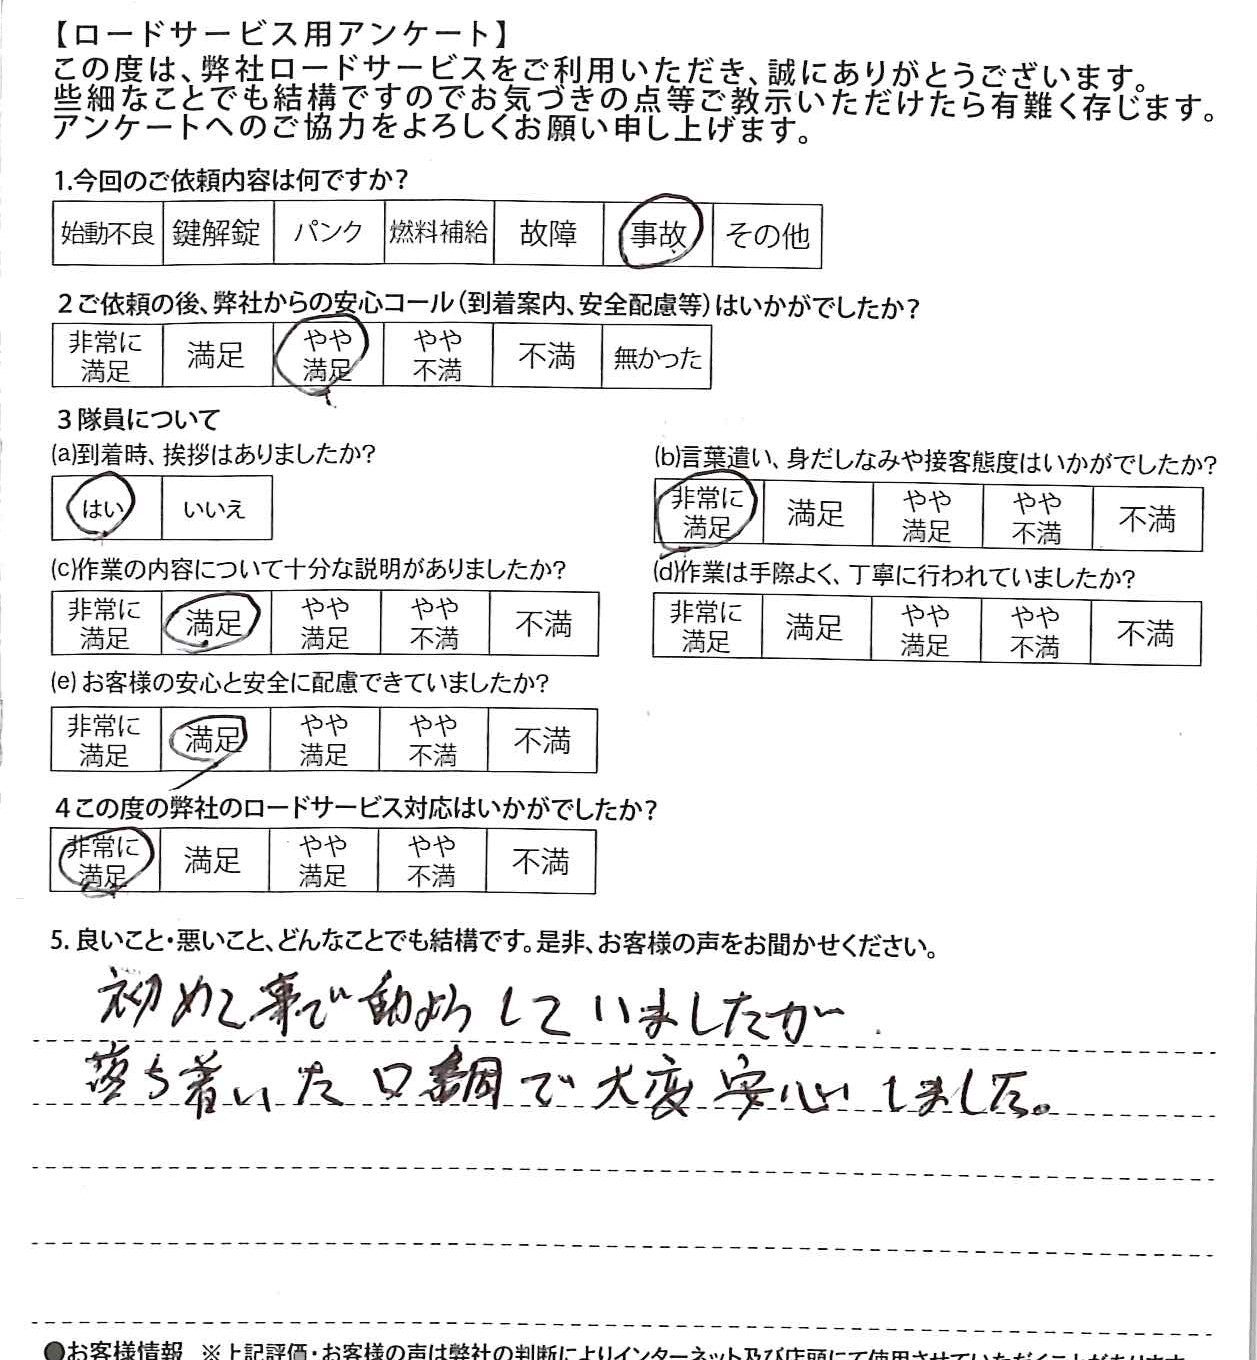 【ロードサービス用アンケート】
この度は、弊社ロードサービスをご利用いただき、誠にありがとうございます。
些細なことでも結構ですのでお気づきの点等ご教示いただけたら有難く存じます。
アンケートへのご協力をよろしくお願い申し上げます。
1.今回のご依頼内容は何ですか?
始動不良 鍵解錠 パンク 燃料補給 故障 事故 その他
2ご依頼の後、弊社からの安心コール(到着案内、安全配慮等)はいかがでしたか?
非常に満足 満足 やや満足 やや不満 不満 無かった
3隊員について
(a)到着時、挨拶はありましたか?
はい いいえ
(b)言葉遣い、身だしなみや接客態度はいかがでしたか?
非常に満足 満足 やや満足 やや不満 不満
(c)作業の内容について十分な説明がありましたか?
非常に満足 満足 やや満足 やや不満 不満
(d)作業は手際よく、丁寧に行われていましたか?
非常に満足 満足 やや満足 やや不満 不満
(e)お客様の安心と安全に配慮できていましたか?
非常に満足 満足 やや満足 やや不満 不満
4この度の弊社のロードサービス対応はいかがでしたか?
非常に満足 満足 やや満足 やや不満 不満
5.良いこと・悪いこと、どんなことでも結構です。是非、お客様の声をお聞かせください。
初めて事で動よう していましたが
落ち着いた口調で大変安心しました。
●お客様情報 ※上記評価・お客様の声は弊社の判断によりインターネット及び店頭にて使用させていただくことがあります